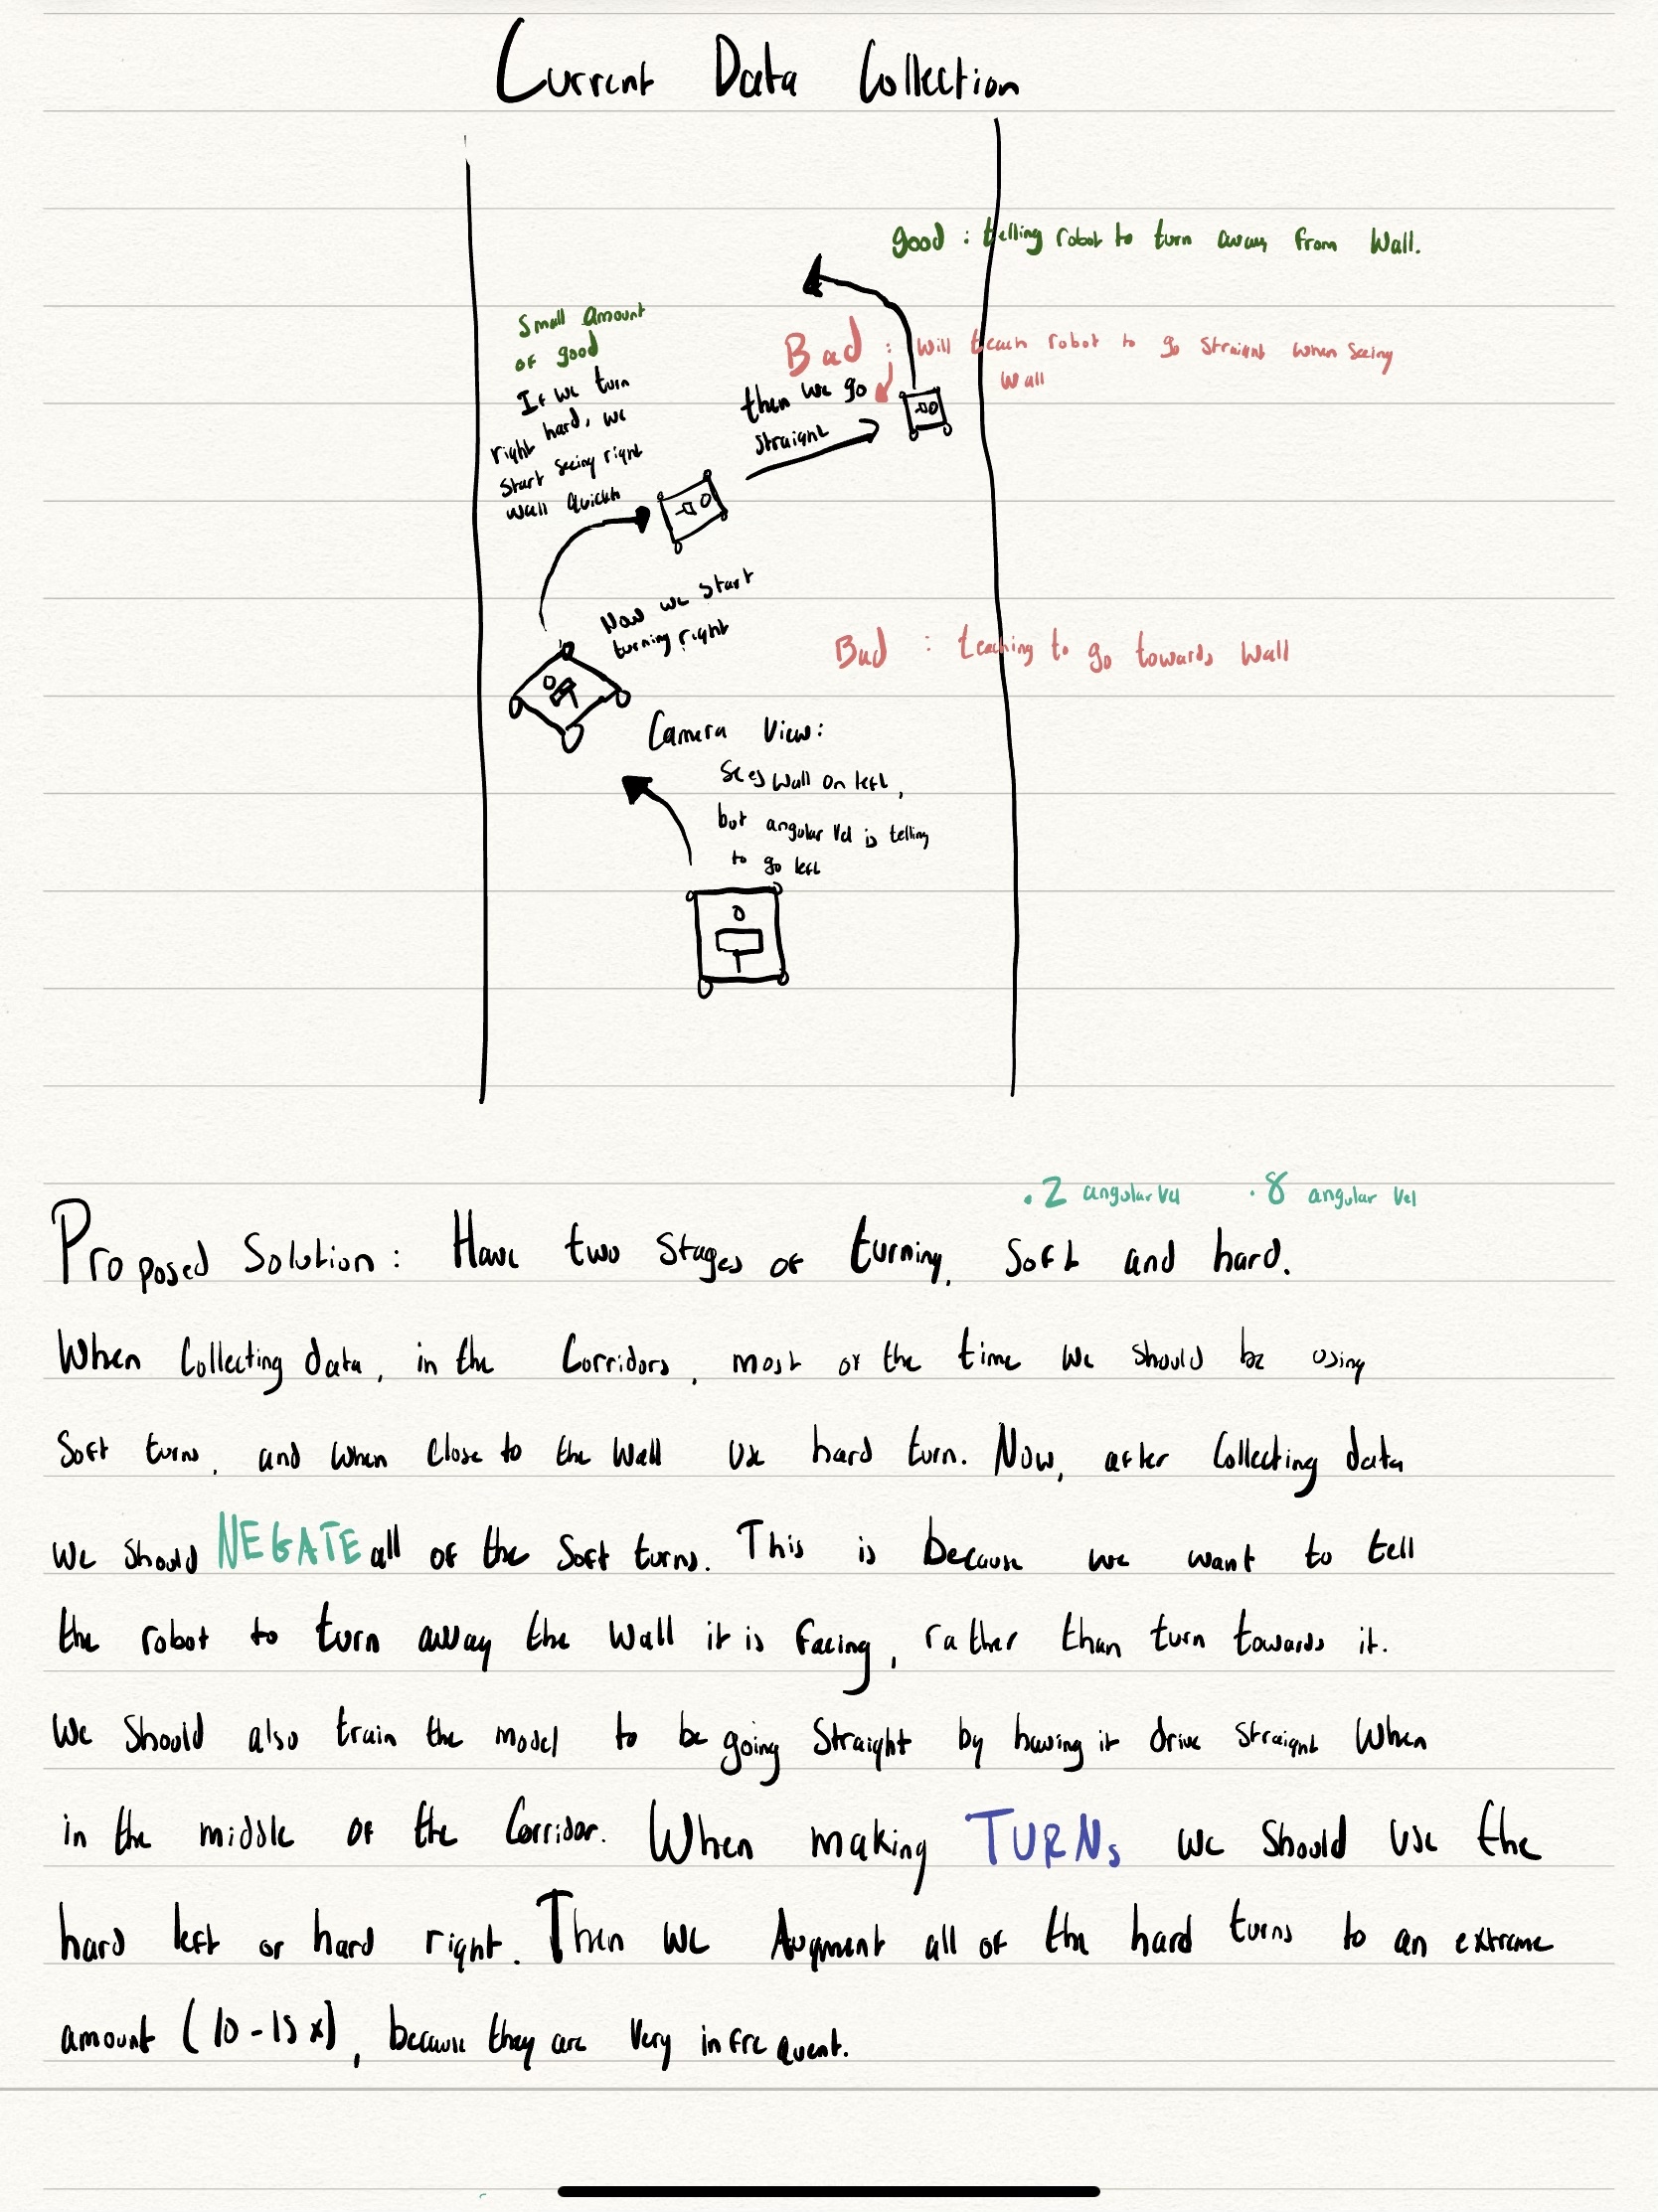 Current Data Collection
good : telling robot to turn away from Wall.
Small amount
of good
Bad : will teach robot to go straight when seeing
wall
If we turn
right hard, we
start seeing right
wall quickly
then we go
straight
Now we start
turning right
Bad : teaching to go towards wall
Camera View:
Sees wall on left,
but angular vel is telling
to go left
.2 angular vel .8 angular vel
Proposed Solution: Have two stages of turning, Soft and hard.
When Collecting data, in the Corridors, most of the time we should be using
Soft turns, and when close to the wall use hard turn. Now, after Collecting data
we should NEGATE all of the soft turns. This is because we want to tell
the robot to turn away the wall it is facing, rather than turn towards it.
We should also train the model to be going straight by having it drive straight when
in the middle of the Corridor. When making TURNs we should use the
hard left or hard right. Then we Augment all of the hard turns to an extreme
amount (10-15x), because they are very infrequent.